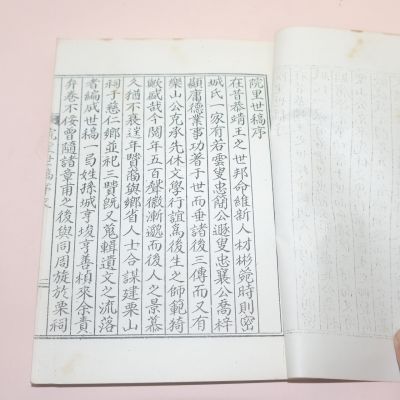 院里世稿序
在昔恭靖王之世邦命維新人材彬彬時則密
城氏一家有若雲叟忠簡公遯叟忠襄公喬梓
顯庸德業事功著于世而垂諸後三傳而又有
樂山公克承先休文學行誼爲後生之師範猗
歟盛哉今閱年五百聲徽漸邈而後人之景慕
久猶不衰逞年贒裔與鄉省人士合謀建栗山
祠于慈仁鄉並祀三贒旣又蒐輯遺文之流落
者編成世稿一卷姓孫城亨埈亨善楨來余責
弁卷不佞曾隨諸章甫之後與同周旋於栗祠
院里世稿序